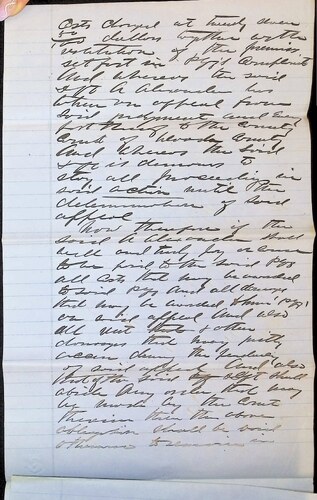 Costs charged at twenty seven
50/100 dollars together with the
restitution of the premises
set forth in Plffs Complaint
And whereas the said
Deft A Alexander has
taken an appeal from
said judgment and every
part thereof to the County
Court of Alameda County
And whereas the said
Deft is desirous to
stay all proceedings in
said action until the
determination of said
appeal
Now therefore if the
said A Alexander shall
well and truly pay or cause
to be paid to the said Plff
all Costs that may be awarded
to said Plff And all damages
that may be awarded
on said appeal And also
all rent and other
damages that may justly
accrue during the pendency
of said appeal And also
that if the said Deft shall
abide any order that may
be made by the Court
therein then the above
obligation shall be void
otherwise to remain in